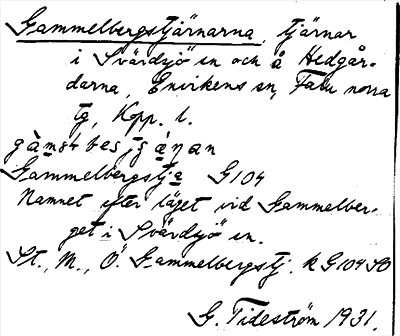 Gammelbergstjärnarna, tjärnar
i Svärdsjö sn och å Hedgår-
darna, Envikens sn, Falu norra
tg, Kopp. l.
Gammelbergstj:a G104
Namnet efter läget vid Gammelber-
get i Svärdsjö sn.
St., M., Ö. Gammelbergstj. k G104 SO
G. Tideström 1931.